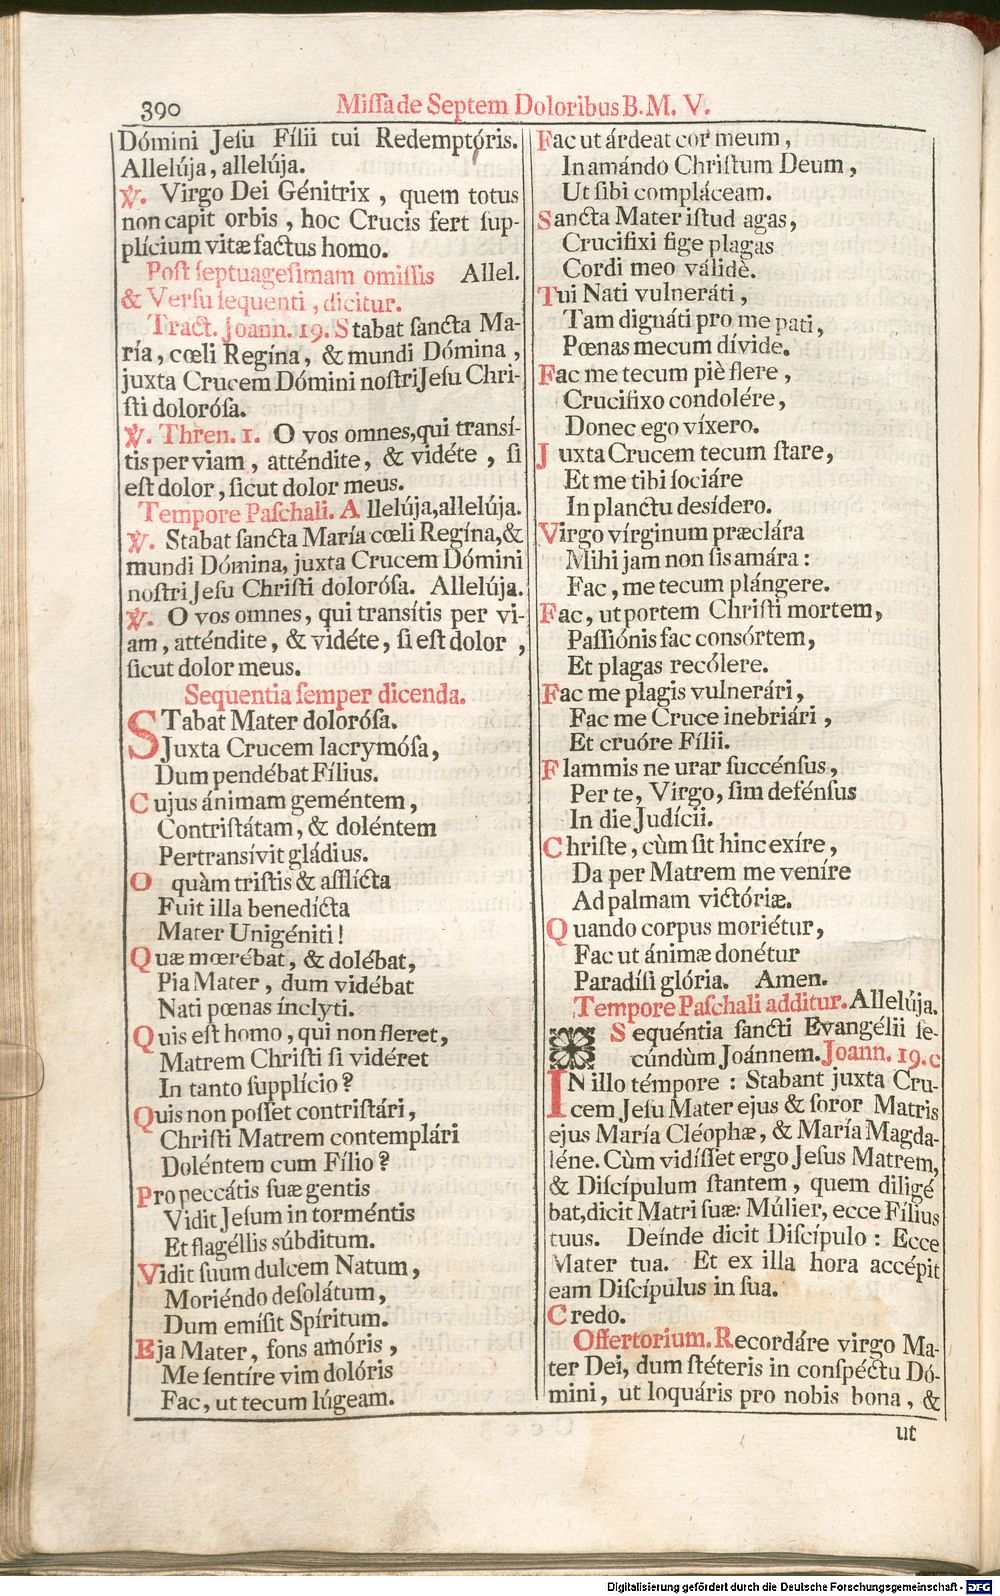 390
Miſſa de Septem Doloribus B. M. V.
Dómini Jeſu Fílii tui Redemptóris.
Allelúja, allelúja.
℣. Virgo Dei Génitrix, quem totus
non capit orbis, hoc Crucis fert ſup-
plícium vitæ factus homo.
Poſt ſeptuageſimam omiſſis Allel.
& Verſu ſequenti, dicitur.
Tract. Joann. 19. Stabat ſancta Ma-
ría, cœli Regína, & mundi Dómina,
juxta Crucem Dómini noſtri Jeſu Chri-
ſti doloróſa.
℣. Thren. 1. O vos omnes, qui transí-
tis per viam, atténdite, & vidéte, ſi
eſt dolor, ſicut dolor meus.
Tempore Paſchali. Allelúja, allelúja.
℣. Stabat ſancta María cœli Regína, &
mundi Dómina, juxta Crucem Dómini
noſtri Jeſu Chriſti doloróſa. Allelúja.
℣. O vos omnes, qui transítis per vi-
am, atténdite, & vidéte, ſi eſt dolor,
ſicut dolor meus.
Sequentia ſemper dicenda.
STabat Mater doloróſa.
Juxta Crucem lacrymóſa,
Dum pendébat Fílius.
Cujus ánimam geméntem,
Contriſtátam, & doléntem
Pertransívit gládius.
O quàm triſtis & afflícta
Fuit illa benedícta
Mater Unigéniti!
Quæ mœrébat, & dolébat,
Pia Mater, dum vidébat
Nati pœnas ínclyti.
Quis eſt homo, qui non fleret,
Matrem Chriſti ſi vidéret
In tanto ſupplício?
Quis non poſſet contriſtári,
Chriſti Matrem contemplári
Doléntem cum Fílio?
Pro peccátis ſuæ gentis
Vidit Jeſum in torméntis
Et flagéllis súbditum.
Vidit ſuum dulcem Natum,
Moriéndo deſolátum,
Dum emíſit Spíritum.
Eja Mater, fons amóris,
Me ſentíre vim dolóris
Fac, ut tecum lúgeam.
Fac ut árdeat cor meum,
In amándo Chriſtum Deum,
Ut ſibi compláceam.
Sancta Mater iſtud agas,
Crucifixi fige plagas
Cordi meo válidè.
Tui Nati vulneráti,
Tam dignáti pro me pati,
Pœnas mecum dívide.
Fac me tecum piè flere,
Crucifixo condolére,
Donec ego víxero.
Juxta Crucem tecum ſtare,
Et me tibi ſociáre
In planctu desídero.
Virgo vírginum præclára
Mihi jam non ſis amára:
Fac, me tecum plángere.
Fac, ut portem Chriſti mortem,
Paſſiónis fac conſórtem,
Et plagas recólere.
Fac me plagis vulnerári,
Fac me Cruce inebriári,
Et cruóre Fílii.
Flammis ne urar ſuccénſus,
Per te, Virgo, ſim defénſus
In die Judícii.
Chriſte, cùm ſit hinc exíre,
Da per Matrem me veníre
Ad palmam victóriæ.
Quando corpus moriétur,
Fac ut ánimæ donétur
Paradíſi glória. Amen.
Tempore Paſchali additur. Allelúja.
Sequéntia ſancti Evangélii ſe-
cúndùm Joánnem. Joann. 19. c
IN illo témpore: Stabant juxta Cru-
cem Jeſu Mater ejus & ſoror Matris
ejus María Cléophæ, & María Magda-
léne. Cùm vidíſſet ergo Jeſus Matrem,
& Diſcípulum ſtantem, quem diligé
bat, dicit Matri ſuæ: Múlier, ecce Fílius
tuus. Deínde dicit Diſcípulo: Ecce
Mater tua. Et ex illa hora accépit
eam Diſcípulus in ſua.
Credo.
Offertorium. Recordáre virgo Ma-
ter Dei, dum ſtéteris in conſpéctu Dó-
mini, ut loquáris pro nobis bona, &
ut
Digitalisierung gefördert durch die Deutsche Forschungsgemeinschaft - DFG